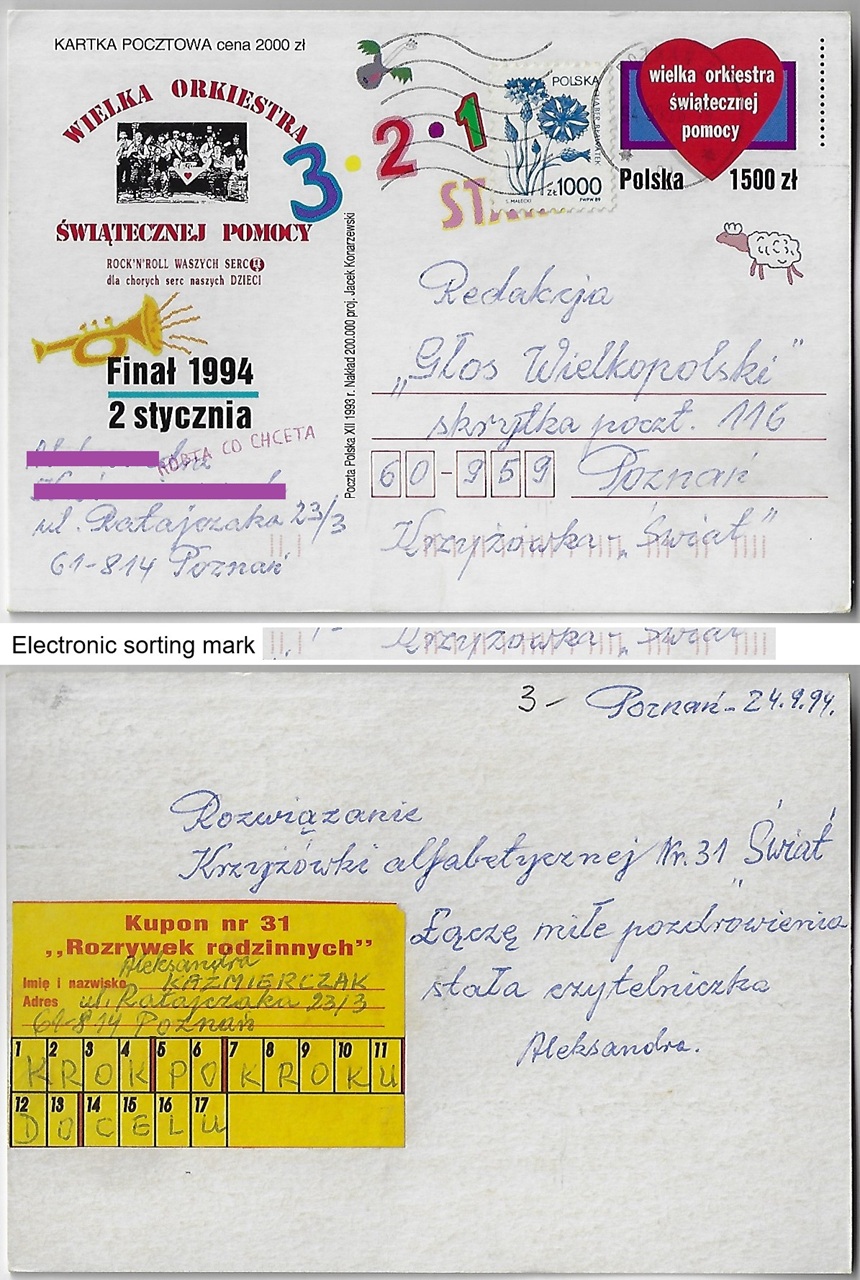 KARTKA POCZTOWA cena 2000 zł
WIELKA ORKIESTRA
ŚWIĄTECZNEJ POMOCY
ROCK'N'ROLL WASZYCH SERC
dla chorych serc naszych DZIECI
Finał 1994
2 stycznia
RÓBTA CO CHCETA
ul. Ratajczaka 23/3
61-814 Poznań
Poczta Polska XII 1993 r. Nakład 200.000 proj. Jacek Konarzewski
3·2·1
START
POLSKA
CHABER BŁAWATEK
zł 1000
S. MAŁECKI
PWPW 89
wielka orkiestra
świątecznej
pomocy
Polska 1500 zł
Redakcja
„Głos Wielkopolski"
skrytka poczt. 116
60-959 Poznań
Krzyżówka-„Świat"
Electronic sorting mark
Krzyżówka-„Świat
3- Poznań-24.9.94.
Rozwiązanie
Krzyżówki alfabetycznej Nr.31 "Świat"
Łączę miłe pozdrowienia
stała czytelniczka
Aleksandra.
Kupon nr 31
„Rozrywek rodzinnych"
Aleksandra
Imię i nazwisko KAZMIERCZAK
Adres ul. Ratajczaka 23/3
61-814 Poznań
1 2 3 4 5 6 7 8 9 10 11
K R O K P O K R O K U
12 13 14 15 16 17
D O C E L U